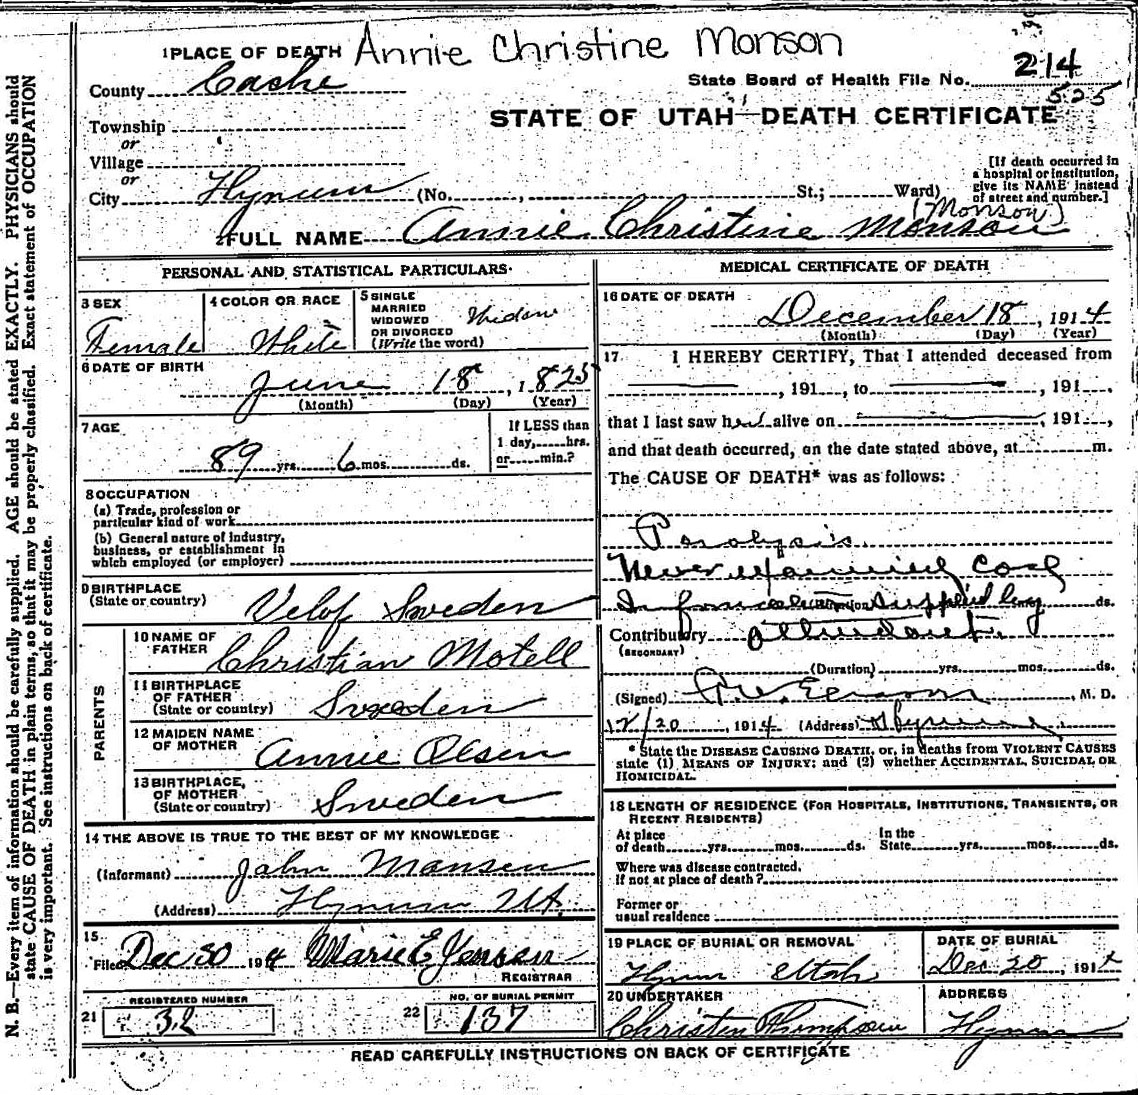 N. B.—Every item of information should be carefully supplied. AGE should be stated EXACTLY. PHYSICIANS should
state CAUSE OF DEATH in plain terms, so that it may be properly classified. Exact statement of OCCUPATION
is very important. See instructions on back of certificate.
1 PLACE OF DEATH Annie Christine Monson
County Cache
State Board of Health File No. 214
525
Township
or
Village
or
STATE OF UTAH—DEATH CERTIFICATE
[If death occurred in
a hospital or institution,
give its NAME instead
of street and number.]
City Hyrum (No. , St.; Ward)
(Monson)
2 FULL NAME Annie Christine Monson
PERSONAL AND STATISTICAL PARTICULARS
3 SEX
Female
4 COLOR OR RACE
White
5 SINGLE
MARRIED
WIDOWED
OR DIVORCED
(Write the word)
Widow
6 DATE OF BIRTH
June 18, 1825
(Month) (Day) (Year)
7 AGE
89 yrs. 6 mos. ds.
If LESS than
1 day, hrs.
or min.?
8 OCCUPATION
(a) Trade, profession or
particular kind of work
(b) General nature of industry,
business, or establishment in
which employed (or employer)
9 BIRTHPLACE
(State or country) Sweden
PARENTS
10 NAME OF
FATHER Christian Motell
11 BIRTHPLACE
OF FATHER
(State or country) Sweden
12 MAIDEN NAME
OF MOTHER Annie Olsen
13 BIRTHPLACE
OF MOTHER
(State or country) Sweden
14 THE ABOVE IS TRUE TO THE BEST OF MY KNOWLEDGE
(Informant) John Monsen
(Address) Hyrum Ut.
15
Filed Dec 30 1914 Marie E Jensen
REGISTRAR
21 REGISTERED NUMBER
32
22 NO. OF BURIAL PERMIT
137
MEDICAL CERTIFICATE OF DEATH
16 DATE OF DEATH
December 18, 1914
(Month) (Day) (Year)
17 I HEREBY CERTIFY, That I attended deceased from
, 191 , to , 191 ,
that I last saw her alive on , 191 ,
and that death occurred, on the date stated above, at m.
The CAUSE OF DEATH* was as follows:
Paralysis.
Never
Information supplied by ds.
Contributory attendant.
(SECONDARY)
(Duration) yrs. mos. ds.
(Signed) M. D.
12/20, 1914 (Address) Hyrum
* State the DISEASE CAUSING DEATH, or, in deaths from VIOLENT CAUSES
state (1) MEANS OF INJURY; and (2) whether ACCIDENTAL, SUICIDAL OR
HOMICIDAL.
18 LENGTH OF RESIDENCE (FOR HOSPITALS, INSTITUTIONS, TRANSIENTS, OR
RECENT RESIDENTS)
At place
of death yrs. mos. ds.
In the
State yrs. mos. ds.
Where was disease contracted,
if not at place of death?
Former or
usual residence
19 PLACE OF BURIAL OR REMOVAL
Hyrum Utah
DATE OF BURIAL
Dec 20, 1914
20 UNDERTAKER
Christen Thompson
ADDRESS
Hyrum
READ CAREFULLY INSTRUCTIONS ON BACK OF CERTIFICATE